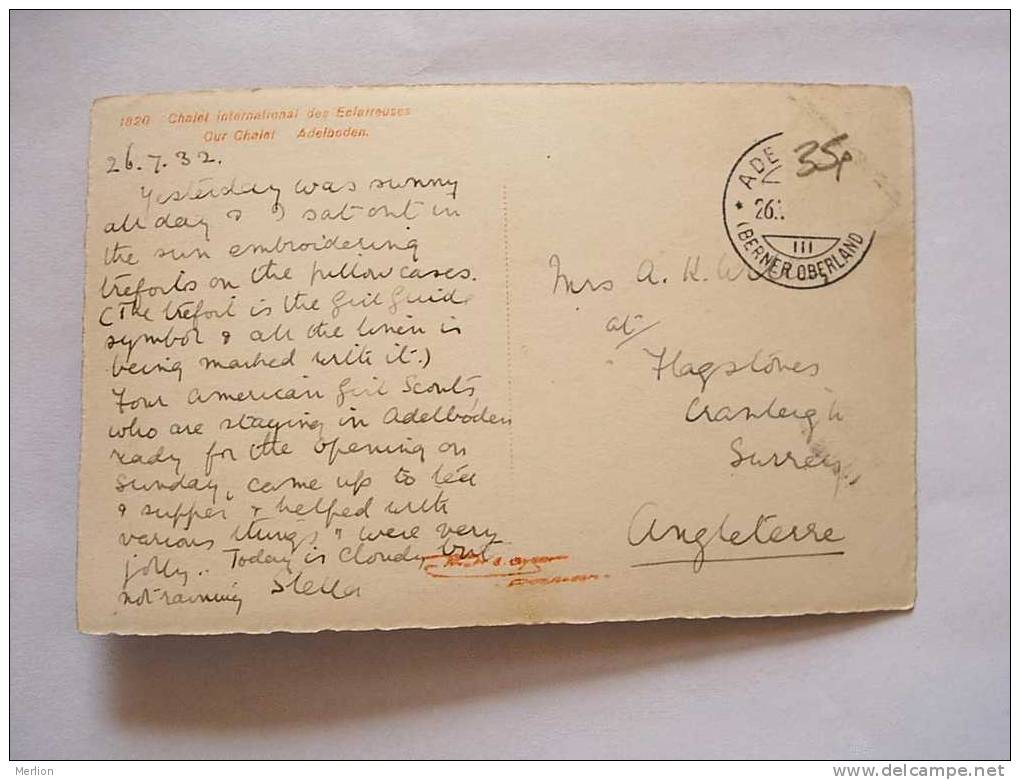 1820 Chalet international des Eclaireuses
Our Chalet Adelboden.
26.7.32.
Yesterday was sunny
all day & I sat out in
the sun embroidering
trefoils on the pillow cases.
(The trefoil is the Girl Guide
symbol & all the linen is
being marked with it.)
Four American Girl Scouts,
who are staying in Adelboden
ready for the opening on
Sunday, came up to tea
& supper & helped with
various things & were very
jolly.. Today is cloudy but
not raining Stella
ADE
26.
III
(BERNER OBERLAND
35p
Mrs A. K.
at
Flagstones
Cranleigh
Surrey
Angleterre
Merlion
www.delcampe.net